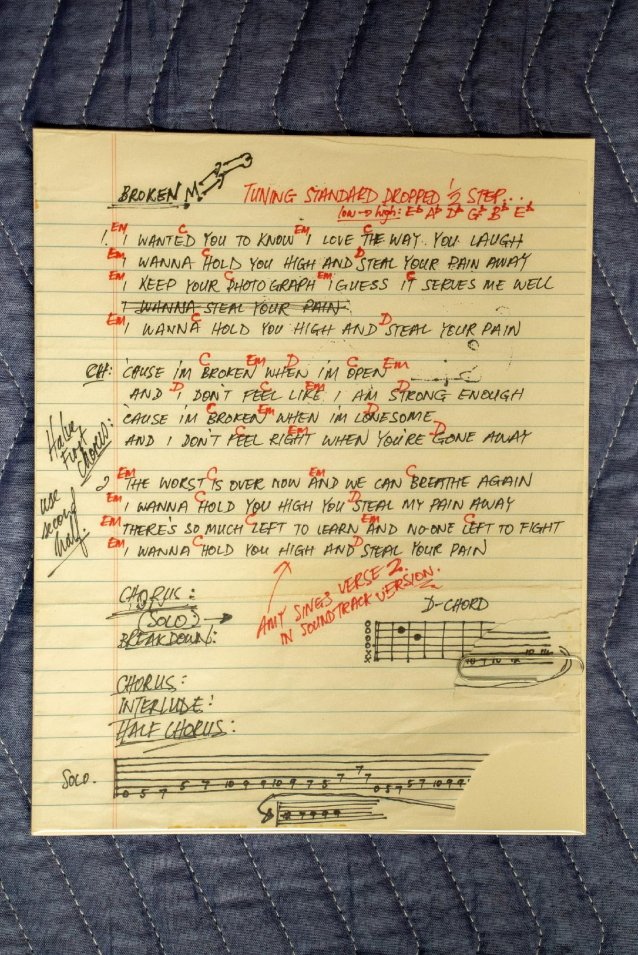 BROKEN
TUNING STANDARD DROPPED 1/2 STEP...
low → high: E♭ A♭ D♭ G♭ B♭ E♭
Em C Em C
1. I WANTED YOU TO KNOW I LOVE THE WAY YOU LAUGH
Em C D
I WANNA HOLD YOU HIGH AND STEAL YOUR PAIN AWAY
Em C Em C
I KEEP YOUR PHOTOGRAPH I GUESS IT SERVES ME WELL
I WANNA STEAL YOUR PAIN
Em C D
I WANNA HOLD YOU HIGH AND STEAL YOUR PAIN
C Em D C Em
CH: 'CAUSE I'M BROKEN WHEN I'M OPEN
D C Em D
AND I DON'T FEEL LIKE I AM STRONG ENOUGH
C Em D
'CAUSE I'M BROKEN WHEN I'M LONESOME
C Em D
AND I DON'T FEEL RIGHT WHEN YOU'RE GONE AWAY
Halve
First
Chorus:
use
second
half.
Em C Em C
2. THE WORST IS OVER NOW AND WE CAN BREATHE AGAIN
Em C D
I WANNA HOLD YOU HIGH YOU STEAL MY PAIN AWAY
Em C Em C
THERE'S SO MUCH LEFT TO LEARN AND NO-ONE LEFT TO FIGHT
Em C D
I WANNA HOLD YOU HIGH AND STEAL YOUR PAIN
AMY SINGS VERSE 2.
IN SOUNDTRACK VERSION.
CHORUS:
(SOLO) →
BREAKDOWN:
D-CHORD
CHORUS:
INTERLUDE:
HALF CHORUS:
SOLO.
0 5 7 5 7 10 9 9 10 9 7 5 7 7 7 0 5 7 5 7 10 9